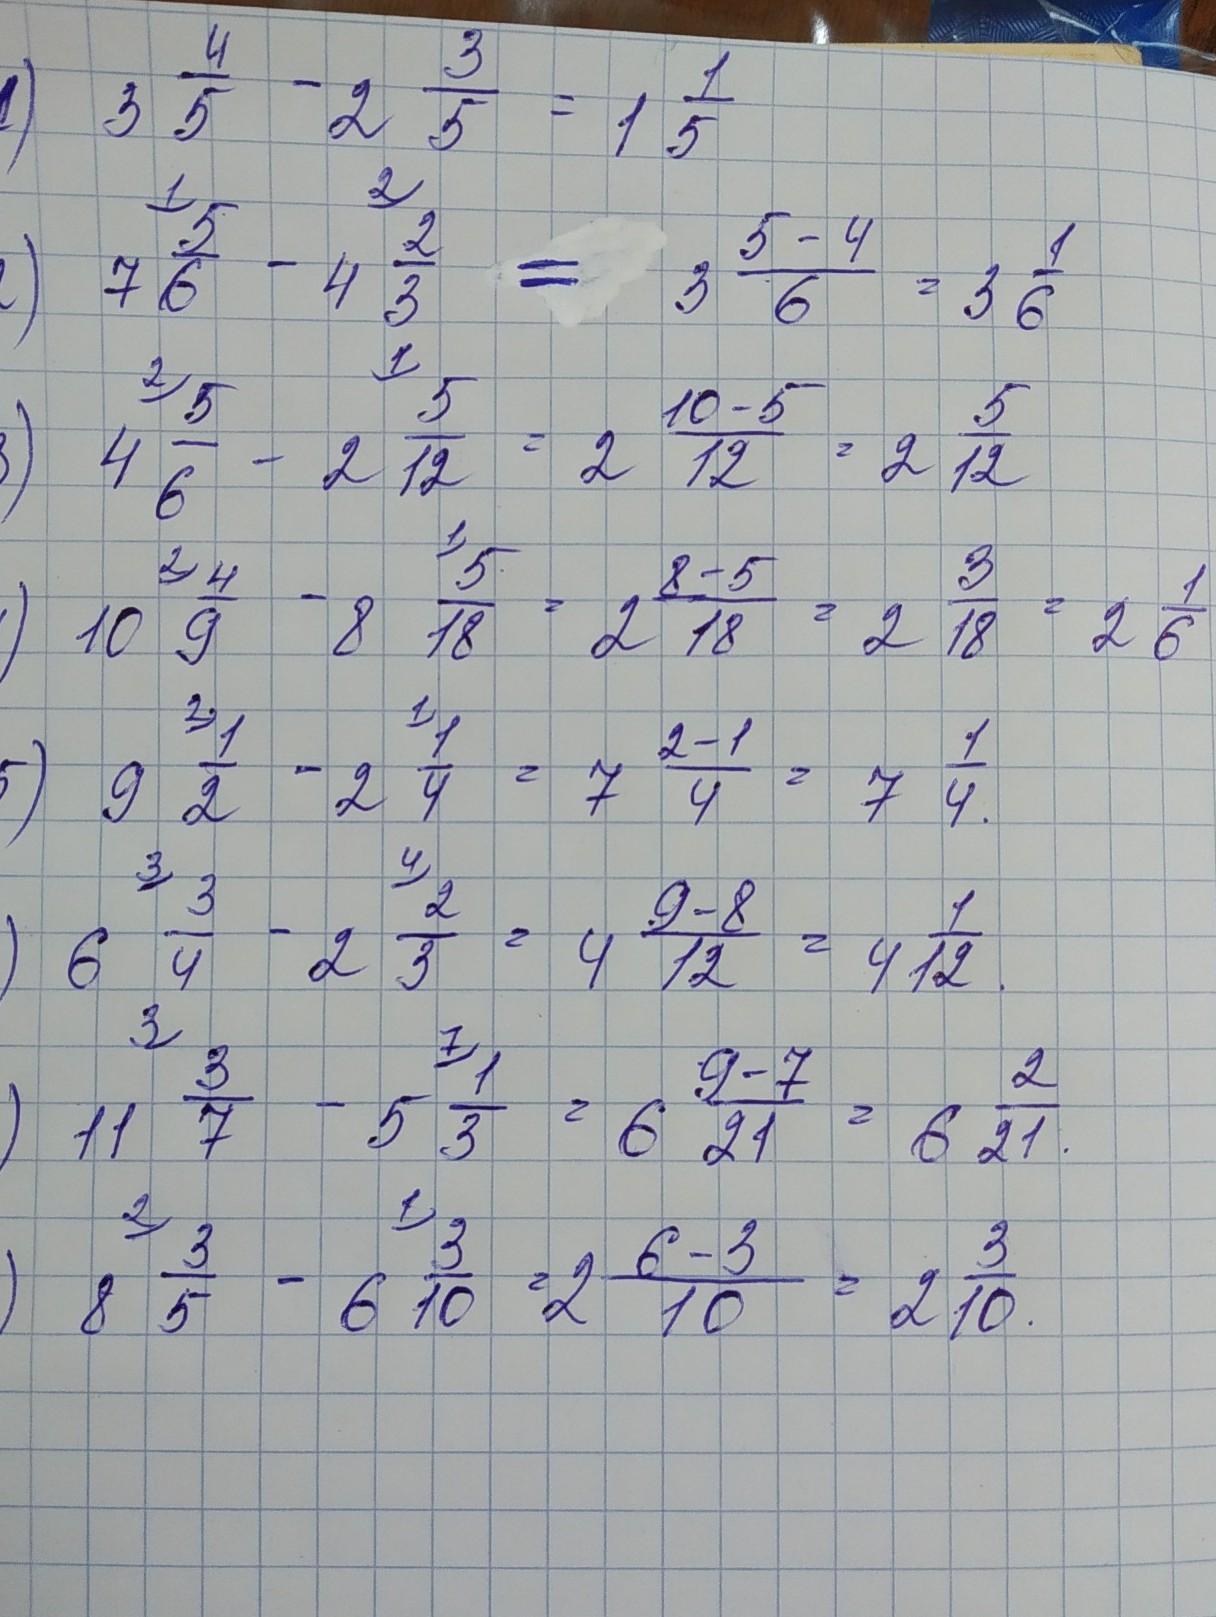 1) 3 4/5 - 2 3/5 = 1 1/5
2) 7 ¹⁾5/6 - 4 ²⁾2/3 = 3 (5-4)/6 = 3 1/6
3) 4 ²⁾5/6 - 2 ¹⁾5/12 = 2 (10-5)/12 = 2 5/12
) 10 ²⁾4/9 - 8 ¹⁾5/18 = 2 (8-5)/18 = 2 3/18 = 2 1/6
5) 9 ²⁾1/2 - 2 ¹⁾1/4 = 7 (2-1)/4 = 7 1/4.
) 6 ³⁾3/4 - 2 ⁴⁾2/3 = 4 (9-8)/12 = 4 1/12.
) 11 ³⁾3/7 - 5 ⁷⁾1/3 = 6 (9-7)/21 = 6 2/21.
) 8 ²⁾3/5 - 6 ¹⁾3/10 = 2 (6-3)/10 = 2 3/10.